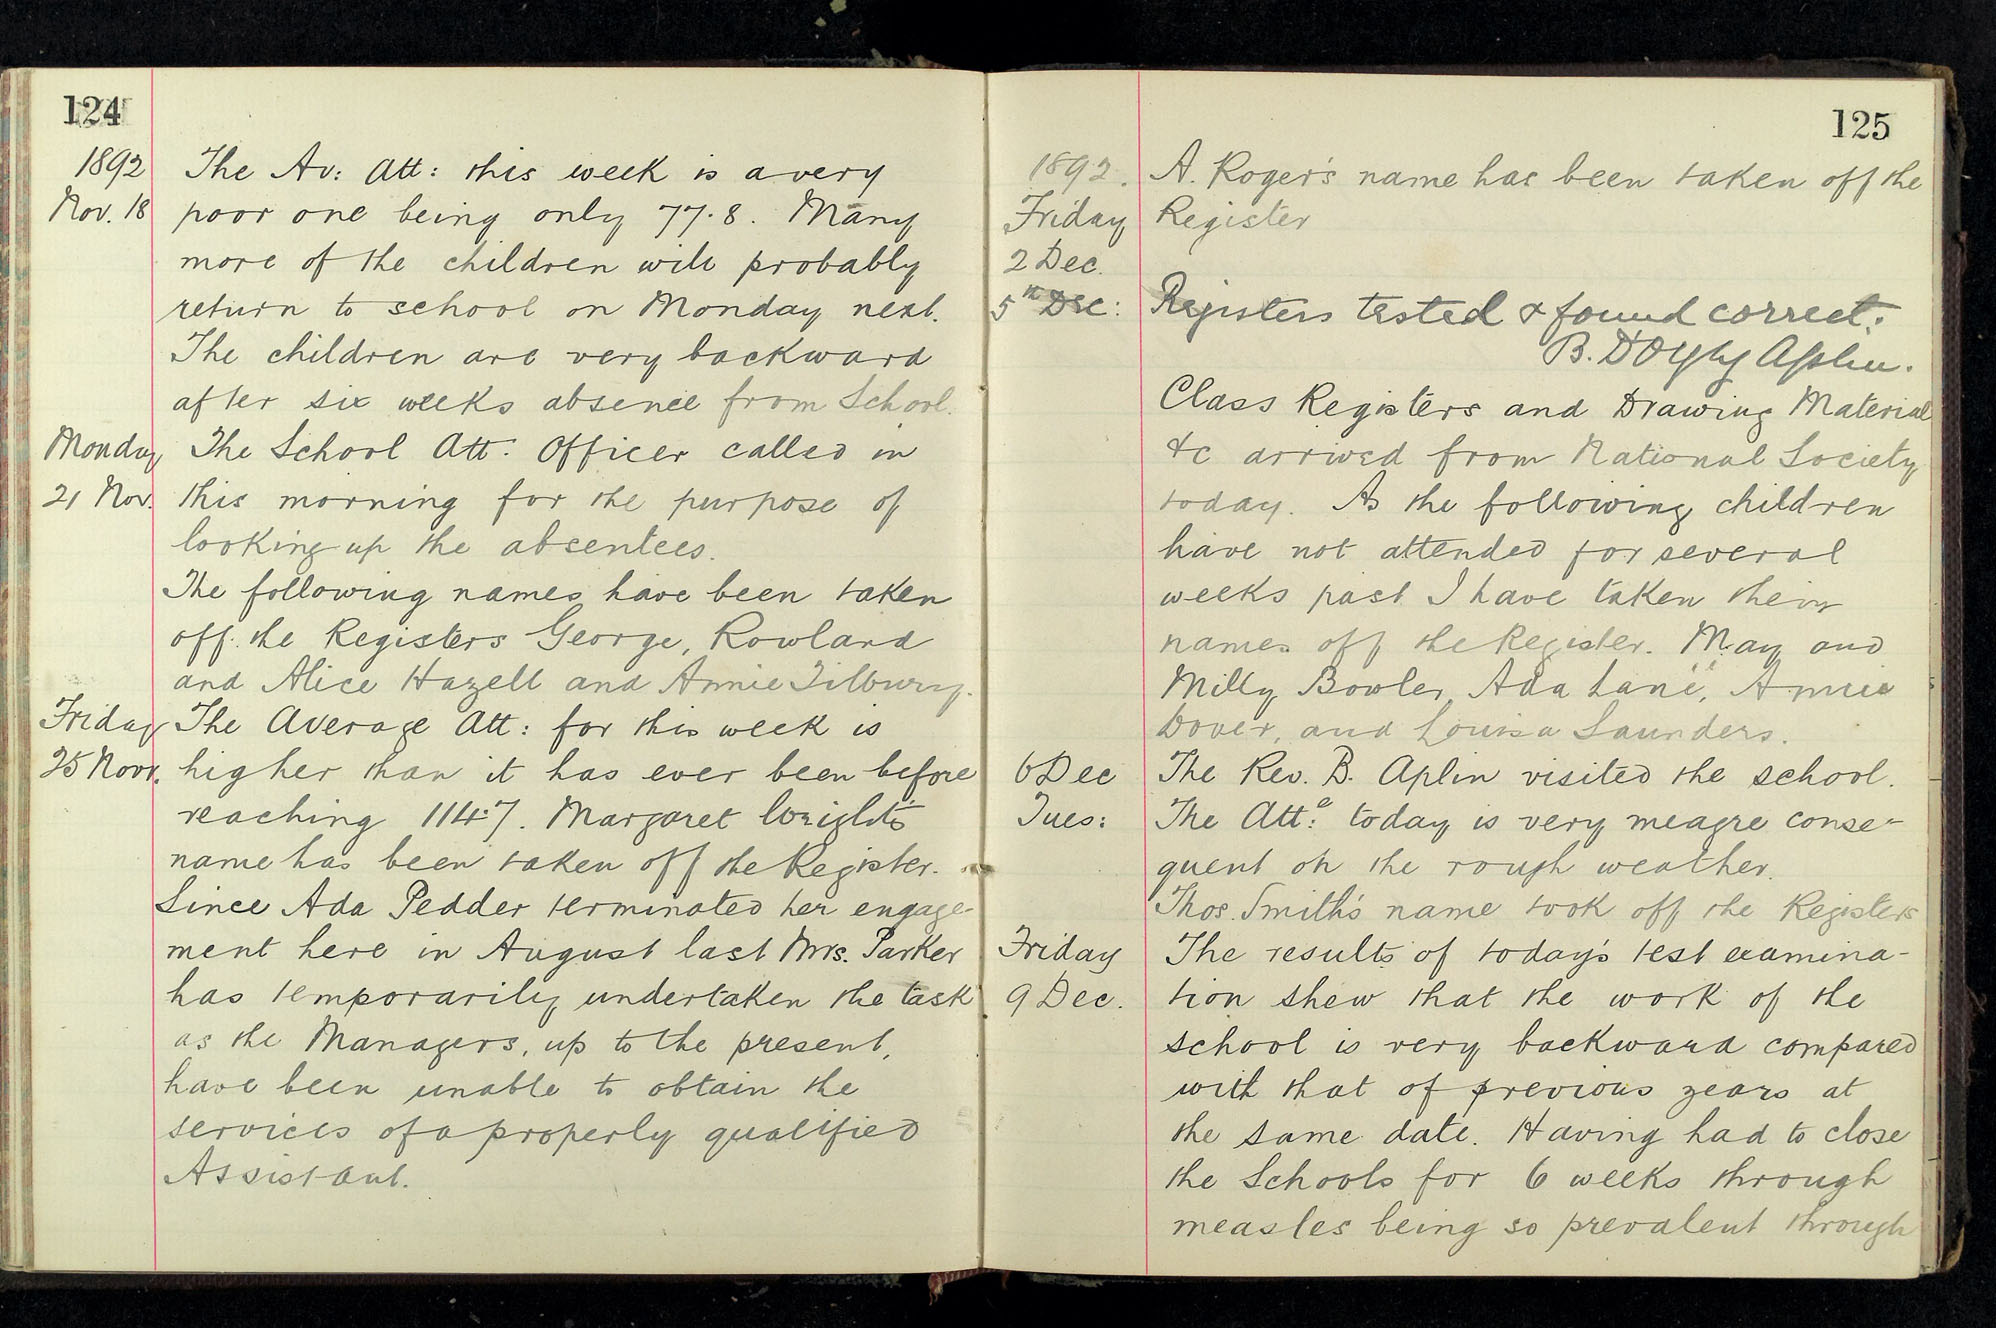 124
1892 The Av: Att: this week is a very
Nov. 18 poor one being only 77.8. Many
more of the children will probably
return to school on Monday next.
The children are very backward
after six weeks absence from School.
Monday The School Att: Officer called in
21 Nov. this morning for the purpose of
looking up the absentees.
The following names have been taken
off the Registers George, Rowland
and Alice Hazell and Annie Tilbury.
Friday The Average Att: for this week is
25 Novr. higher than it has ever been before
reaching 114.7. Margaret Wright's
name has been taken off the Register.
Since Ada Pedder terminated her engage-
ment here in August last Mrs. Parker
has temporarily undertaken the task
as the Managers, up to the present,
have been unable to obtain the
services of a properly qualified
Assistant.
125
1892. A. Roger's name has been taken off the
Friday Register
2 Dec.
5th Dec: Registers tested & found correct:
B. D'Oyly Aplin.
Class Registers and Drawing Material
&c arrived from National Society
today. As the following children
have not attended for several
weeks past I have taken their
names off the Register. May and
Milly Bowler, Ada Lane, Annie
Dover, and Louisa Saunders.
6 Dec The Rev. B. Aplin visited the school.
Tues: The Att:e today is very meagre conse-
quent on the rough weather.
Thos. Smith's name took off the Registers
Friday The results of today's test examina-
9 Dec. tion shew that the work of the
school is very backward compared
with that of previous years at
the same date. Having had to close
the Schools for 6 weeks through
measles being so prevalent through